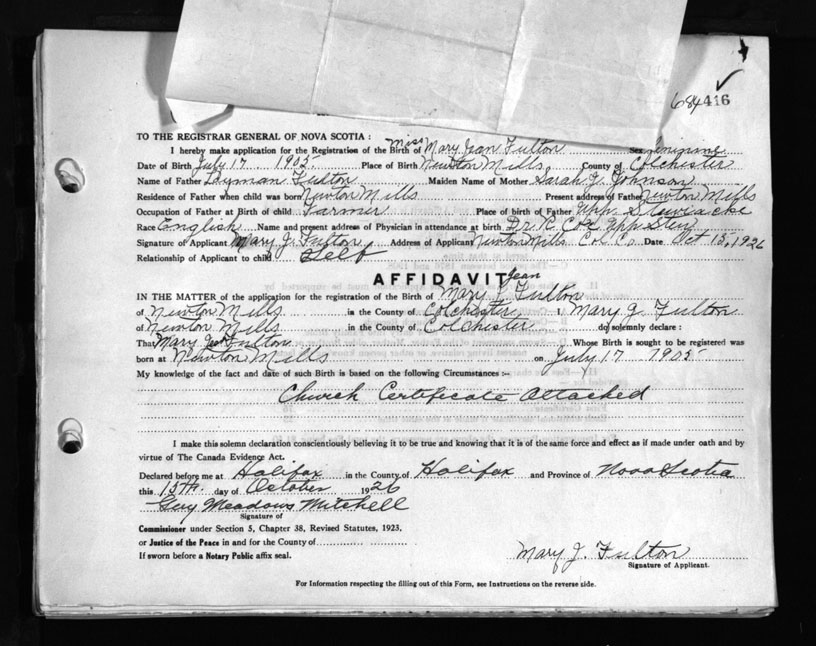 684416
TO THE REGISTRAR GENERAL OF NOVA SCOTIA:
I hereby make application for the Registration of the Birth of Miss Mary Jean Fulton Sex feminine
Date of Birth July 17 1905 Place of Birth Newton Mills County of Colchester
Name of Father Layman Fulton Maiden Name of Mother Sarah J. Johnson
Residence of Father when child was born Newton Mills Present address of Father Newton Mills
Occupation of Father at Birth of child Farmer Place of birth of Father Upp. Stewiacke
Race English Name and present address of Physician in attendance at birth Dr. R. Cox Upp Stew
Signature of Applicant Mary J. Fulton Address of Applicant Newton Mills Col. Co. Date Oct 15, 1926
Relationship of Applicant to child Self
AFFIDAVIT
IN THE MATTER of the application for the registration of the Birth of Mary Jean Fulton
of Newton Mills is in the County of Colchester I, Mary J. Fulton
of Newton Mills in the County of Colchester do solemnly declare:
That Mary Jean Fulton Whose Birth is sought to be registered was
born at Newton Mills on July 17 1905
My knowledge of the fact and date of such Birth is based on the following Circumstances:—
Church Certificate Attached
I make this solemn declaration conscientiously believing it to be true and knowing that it is of the same force and effect as if made under oath and by
virtue of The Canada Evidence Act.
Declared before me at Halifax in the County of Halifax and Province of Nova Scotia
this 15TH day of October 1926
Guy Meadows Mitchell
Signature of
Commissioner under Section 5, Chapter 38, Revised Statutes, 1923.
or Justice of the Peace in and for the County of
If sworn before a Notary Public affix seal.
Mary J. Fulton
Signature of Applicant.
For Information respecting the filling out of this Form, see Instructions on the reverse side.